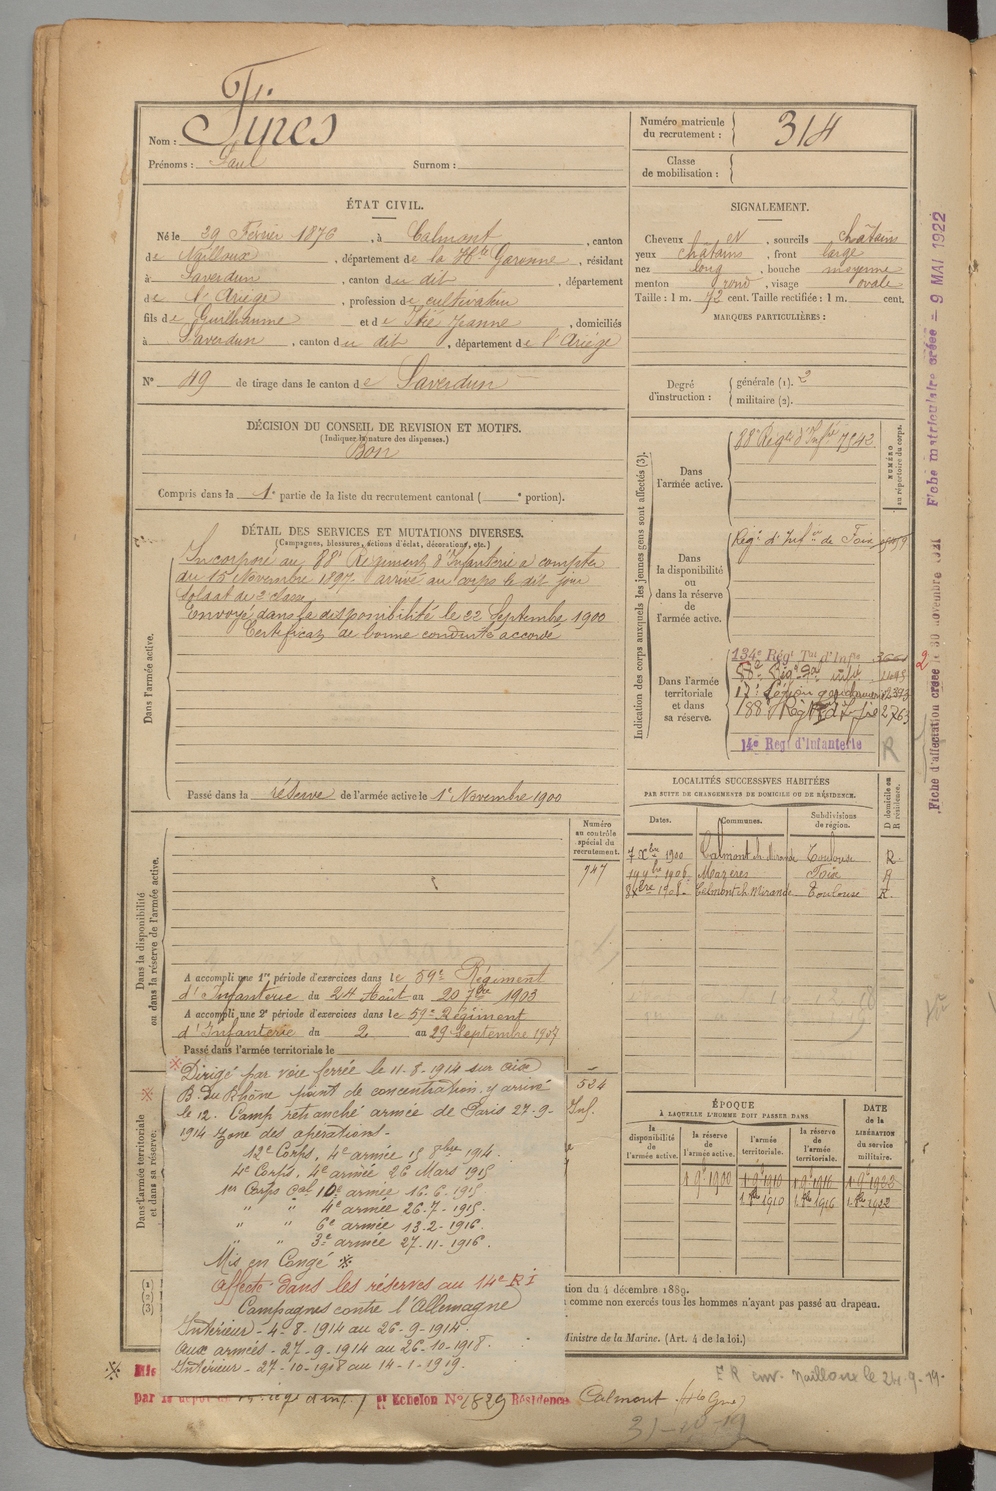 Nom : Fires
Prénoms : Paul Surnom :
Numéro matricule du recrutement : 314
Classe de mobilisation :
ÉTAT CIVIL.
Né le 29 Février 1876, à Calmont, canton
de Nailloux, département de la Hte Garonne, résidant
à Saverdun, canton du dit, département
de l'Ariège, profession de cultivateur
fils de Guilhaume et de Jeanne, domiciliés
à Saverdun, canton du dit, département de l'Ariège
N° 49 de tirage dans le canton de Saverdun
SIGNALEMENT.
Cheveux et, sourcils châtains
yeux châtains, front large
nez long, bouche moyenne
menton rond, visage ovale
Taille : 1 m. 72 cent. Taille rectifiée : 1 m. cent.
MARQUES PARTICULIÈRES :
Degré d'instruction : générale (1). 2
militaire (2).
DÉCISION DU CONSEIL DE REVISION ET MOTIFS.
(Indiquer la nature des dispenses.)
Bon
Compris dans la 1e partie de la liste du recrutement cantonal ( e portion).
DÉTAIL DES SERVICES ET MUTATIONS DIVERSES.
(Campagnes, blessures, actions d'éclat, décorations, etc.)
Dans l'armée active.
Incorporé au 88e Régiment d'Infanterie à compter
du 15 Novembre 1897 arrivé au corps le dit jour
soldat de 2e classe
Envoyé dans la disponibilité le 22 Septembre 1900
Certificat de bonne conduite accordé
Passé dans la réserve de l'armée active le 1er Novembre 1900
Indication des corps auxquels les jeunes gens sont affectés (3).
NUMÉRO au répertoire du corps.
Dans l'armée active.
88e Régt d'Infie 7542
Dans la disponibilité ou dans la réserve de l'armée active.
Régt d'Infie de Foix
Dans l'armée territoriale et dans sa réserve.
134e Régt Tal d'Infie
58e Régt infie
17e Légion
188e Régt d'Infie 2763
14e Regt d'Infanterie
R
2
LOCALITÉS SUCCESSIVES HABITÉES
PAR SUITE DE CHANGEMENTS DE DOMICILE OU DE RÉSIDENCE.
Dates. Communes. Subdivisions de région. D domicile ou R résidence.
7 Xbre 1900 Calmont Toulouse R
19 9bre 1906 Mazères Foix R
1908 Calmont Toulouse R.
Dans la disponibilité ou dans la réserve de l'armée active.
Numéro au contrôle spécial du recrutement.
747
A accompli une 1re période d'exercices dans le 59e Régiment
d'Infanterie du 24 Août au 20 7bre 1903
A accompli une 2e période d'exercices dans le 59e Régiment
d'Infanterie du 2 au 29 Septembre 1907
Passé dans l'armée territoriale le
Dans l'armée territoriale et dans sa réserve.
524
Inf.
Dirigé par voie ferrée le 11-8-1914 sur Aix
B. du Rhône point de concentration, y arrivé
le 12. Camp retranché armée de Paris 27-9-
1914 Zone des opérations -
12e Corps, 4e armée 15 8bre 1914.
4e Corps, 4e armée 26 Mars 1915
1er Corps Cal 10e armée 16-6-1915
" " 4e armée 26-7-1915.
" " 6e armée 13-2-1916.
" " 3e armée 27-11-1916.
Mis en Congé ※
Affecté dans les réserves au 14e R I
Campagnes contre l'Allemagne
Intérieur - 4-8-1914 au 26-9-1914.
Aux armées - 27-9-1914 au 26-10-1918.
Intérieur - 27-10-1918 au 14-1-1919.
ÉPOQUE
À LAQUELLE L'HOMME DOIT PASSER DANS
la disponibilité de l'armée active. la réserve de l'armée active. l'armée territoriale. la réserve de l'armée territoriale. DATE de la LIBÉRATION du service militaire.
1 9e 1900 1 9e 1910 1 9e 1916 1 9e 1923
1 8bre 1910 1 8bre 1916 1 8bre 1922
tion du 4 décembre 1889.
comme non exercés tous les hommes n'ayant pas passé au drapeau.
Ministre de la Marine. (Art. 4 de la loi.)
※ Mis
par le dépôt du et Echelon N° 1829 Résidence Calmont (Hte Gne)
E R env. Nailloux le 24-9-19-
Fiche d'affectation créée le 30 novembre 1921
Fiche matriculaire créée = 9 MAI 1922